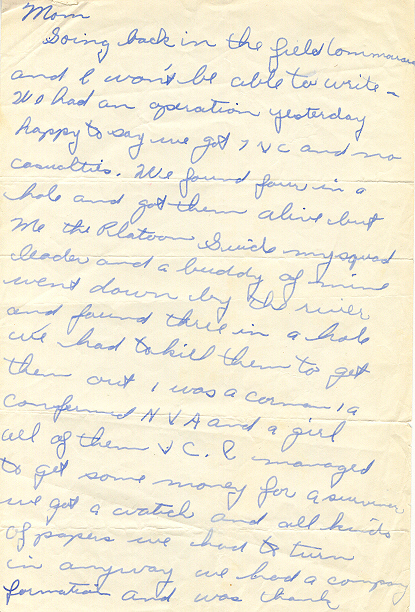 Mom
Going back in the field tommarow
and I won't be able to write -
We had an operation yesterday
happy to say we got 7 VC and no
casualties. We found four in a
hole and got them alive but
Me the Platoon Guide my squad
leader and a buddy of mine
went down by the river
and found three in a hole
we had to kill them to get
them out 1 was a corman 1 a
confermed NVA and a girl
all of them VC. I managed
to get some money for a suviner
we got a watch and all kinds
of papers we had to turn
in anyway we had a company
formation and was thank